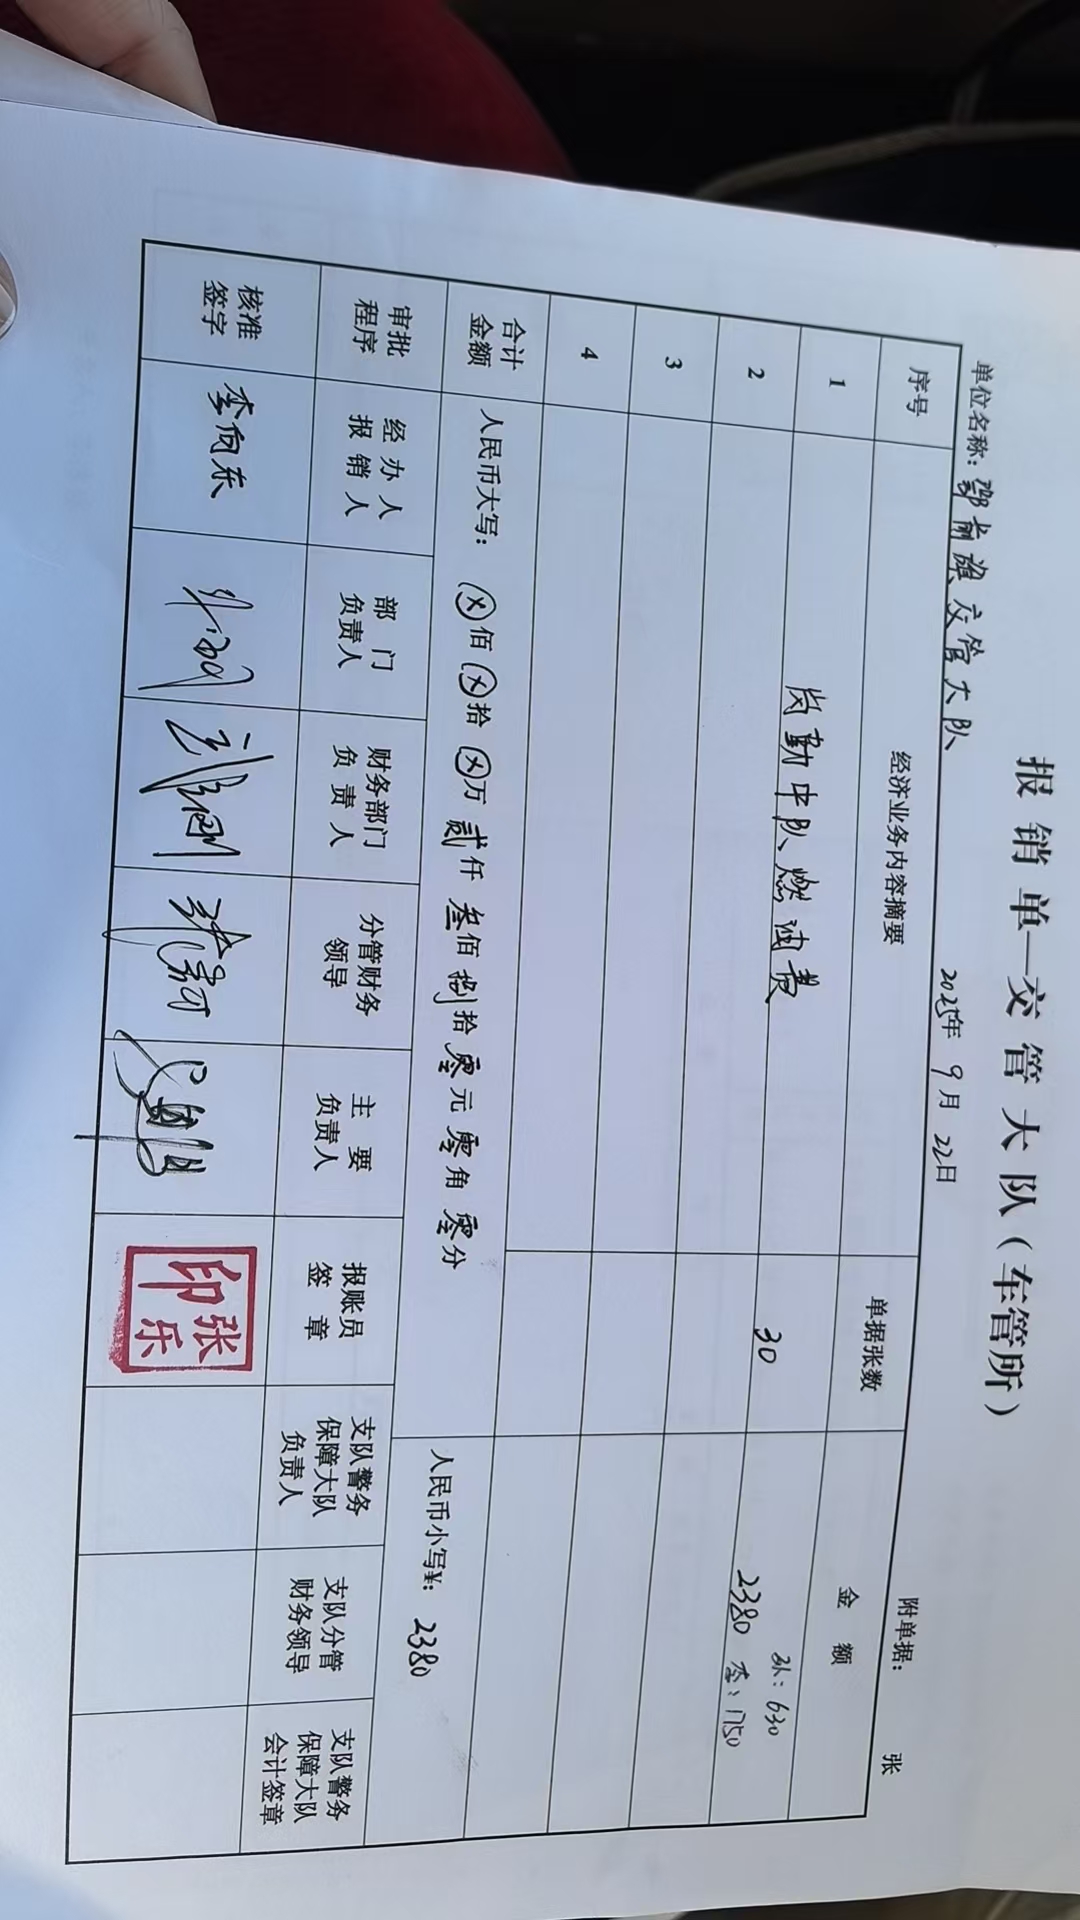 报销单—交管大队（车管所）
单位名称：鄂前旗交管大队 2025年9月22日 附单据： 张
序号 经济业务内容摘要 单据张数 金额
1 岗勤中队燃油费 30 2380 孙：630 李：1750
2
3
4
合计金额 人民币大写：ⓧ佰ⓧ拾ⓧ万贰仟叁佰捌拾零元零角零分 人民币小写¥：2380
审批程序 经办人报销人 部门负责人 财务部门负责人 分管财务领导 主要负责人 报账员签章 支队警务保障大队负责人 支队分管财务领导 支队警务保障大队会计签章
核准签字 李向东 张乐印